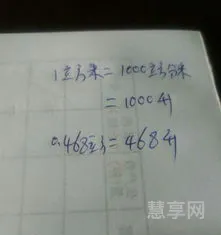 1立方米=1000立方分米
=1000升
0.468立方=468升
慧享网